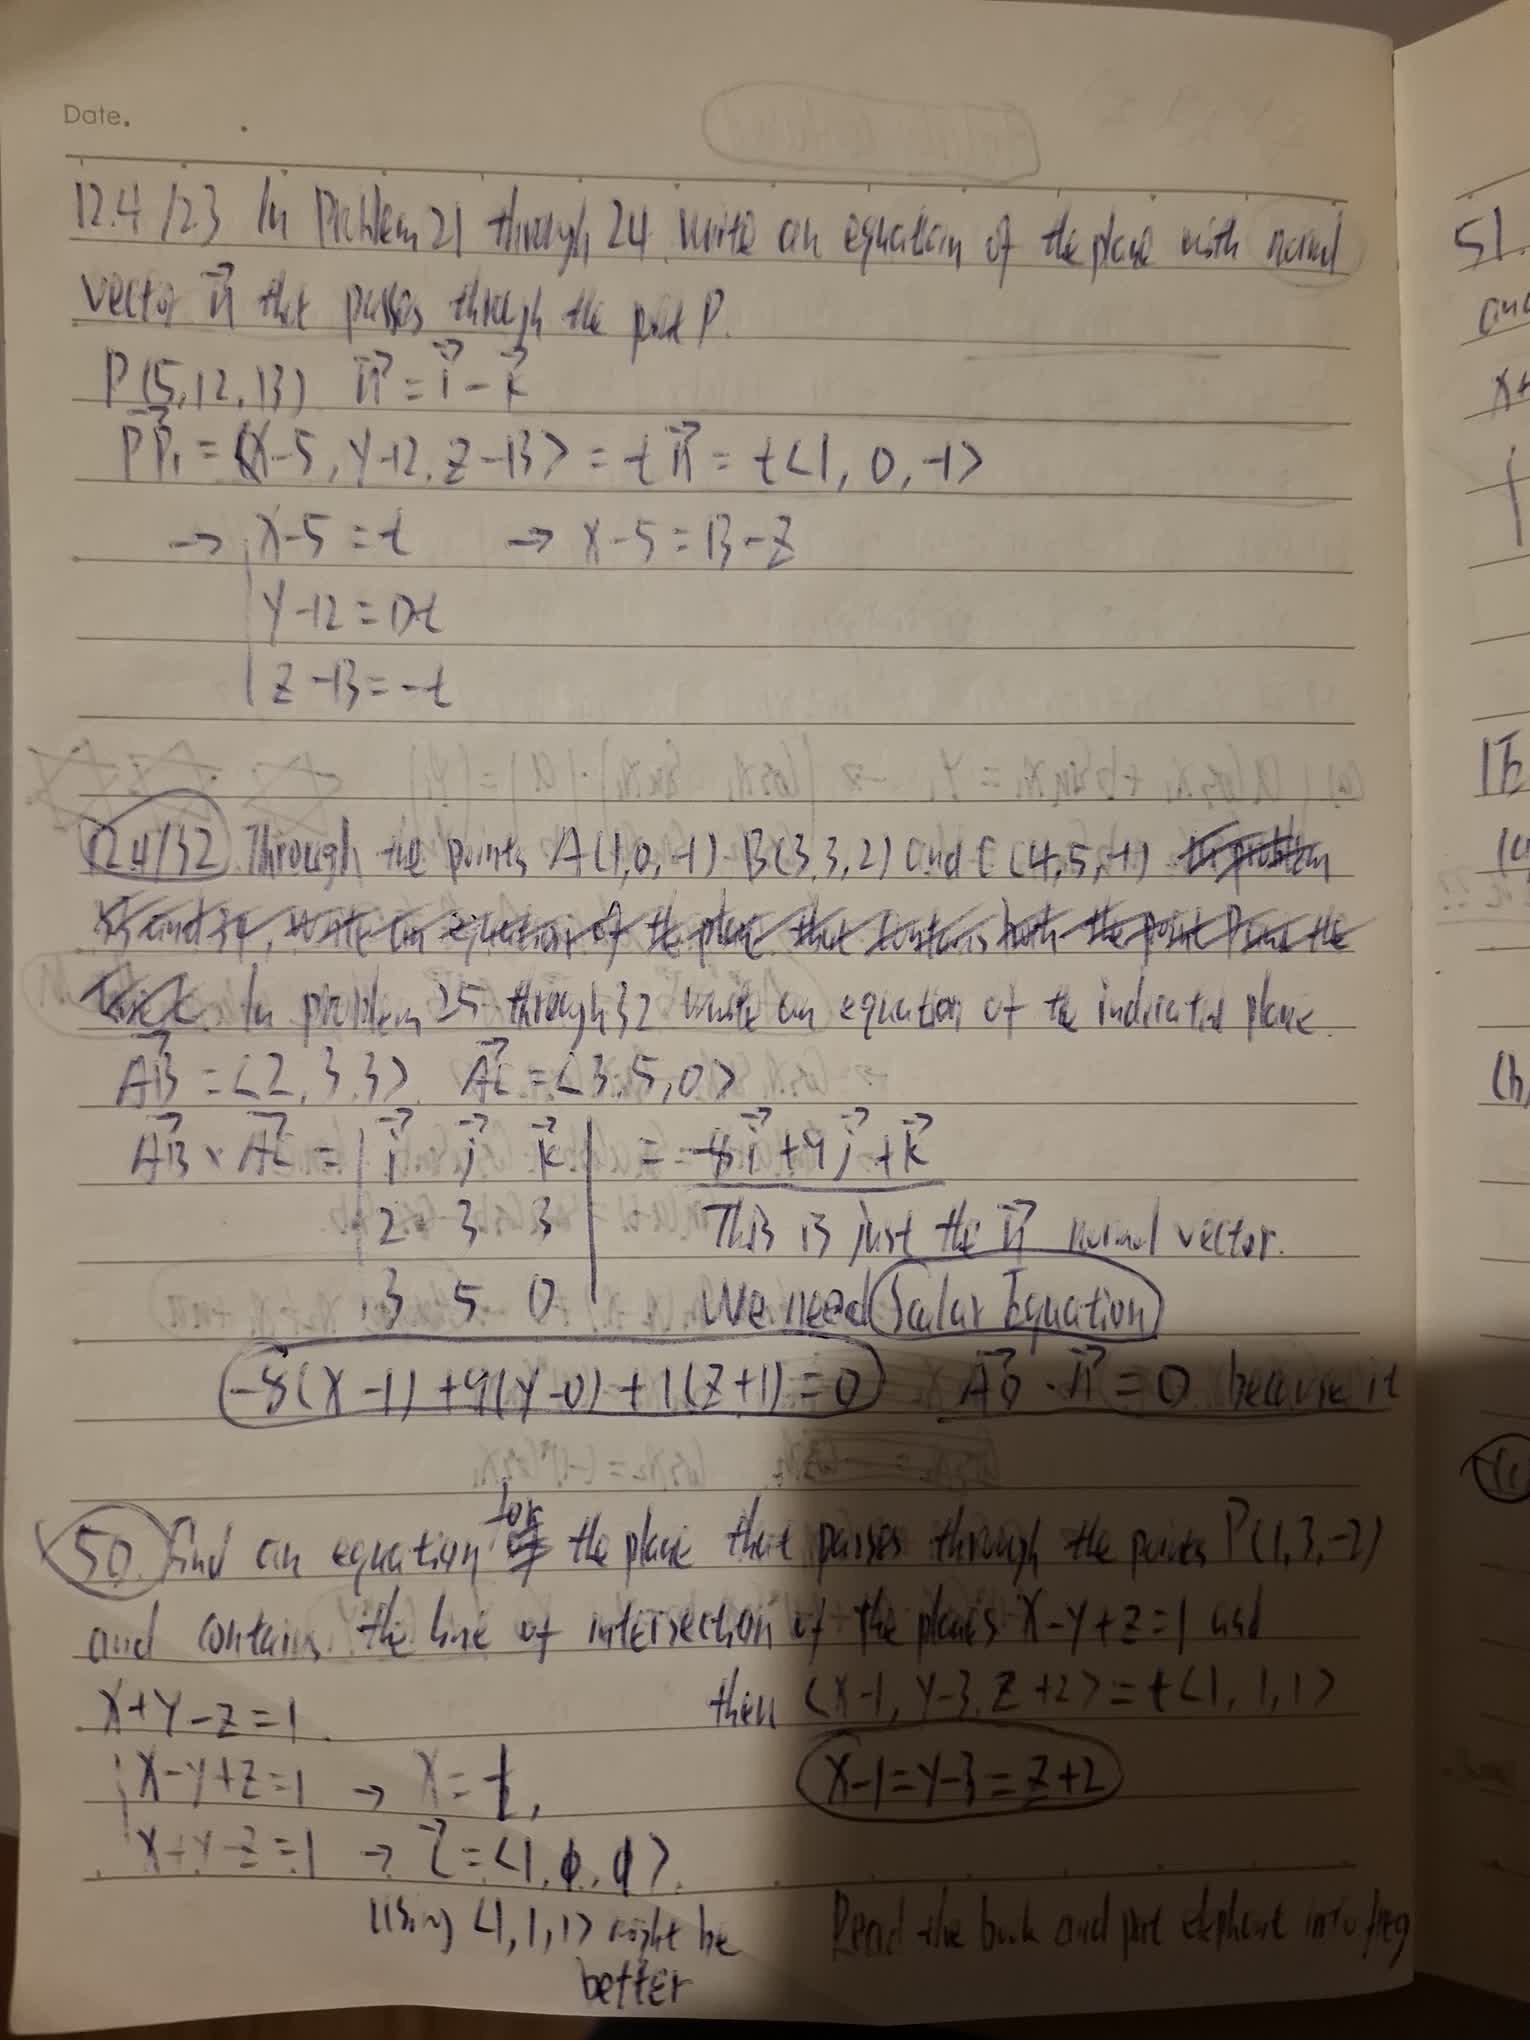 Date.
12.4/23 In Problem 21 through 24 write an equation of the plane with normal
vector n⃗ that passes through the point P.
P(5,12,13) n⃗ = i⃗ - k⃗
PP₁ = <x-5, y-12, z-13> = t n⃗ = t<1, 0, -1>
→ x-5 = t → x-5 = 13-z
y-12 = 0t
z-13 = -t
12.4/32 Through the points A(1,0,-1) B(3,3,2) and C(4,5,-1) In problem
33 and 34, write an equation of the plane that contains both the point P and the
In problem 25 through 32 write an equation of the indicated plane.
AB⃗ = <2, 3, 3> AC⃗ = <3, 5, 0>
AB⃗ × AC⃗ = | i⃗ j⃗ k⃗ | = -8i⃗ + 9j⃗ + k⃗
2 3 3 This is just the n⃗ normal vector.
3 5 0 We need Scalar Equation
-8(x-1) + 9(y-0) + 1(z+1) = 0 · n⃗ = 0 because it
50. Find an equation for the plane that passes through the points P(1,3,-2)
and contains the line of intersection of the planes x-y+z=1 and
x+y-z=1. then <x-1, y-3, z+2> = t<1, 1, 1>
x-y+z=1 → x = t, x-1 = y-3 = z+2
x+y-z=1 →
Using <1,1,1> might be
better
Read the book and put elephant into
51.